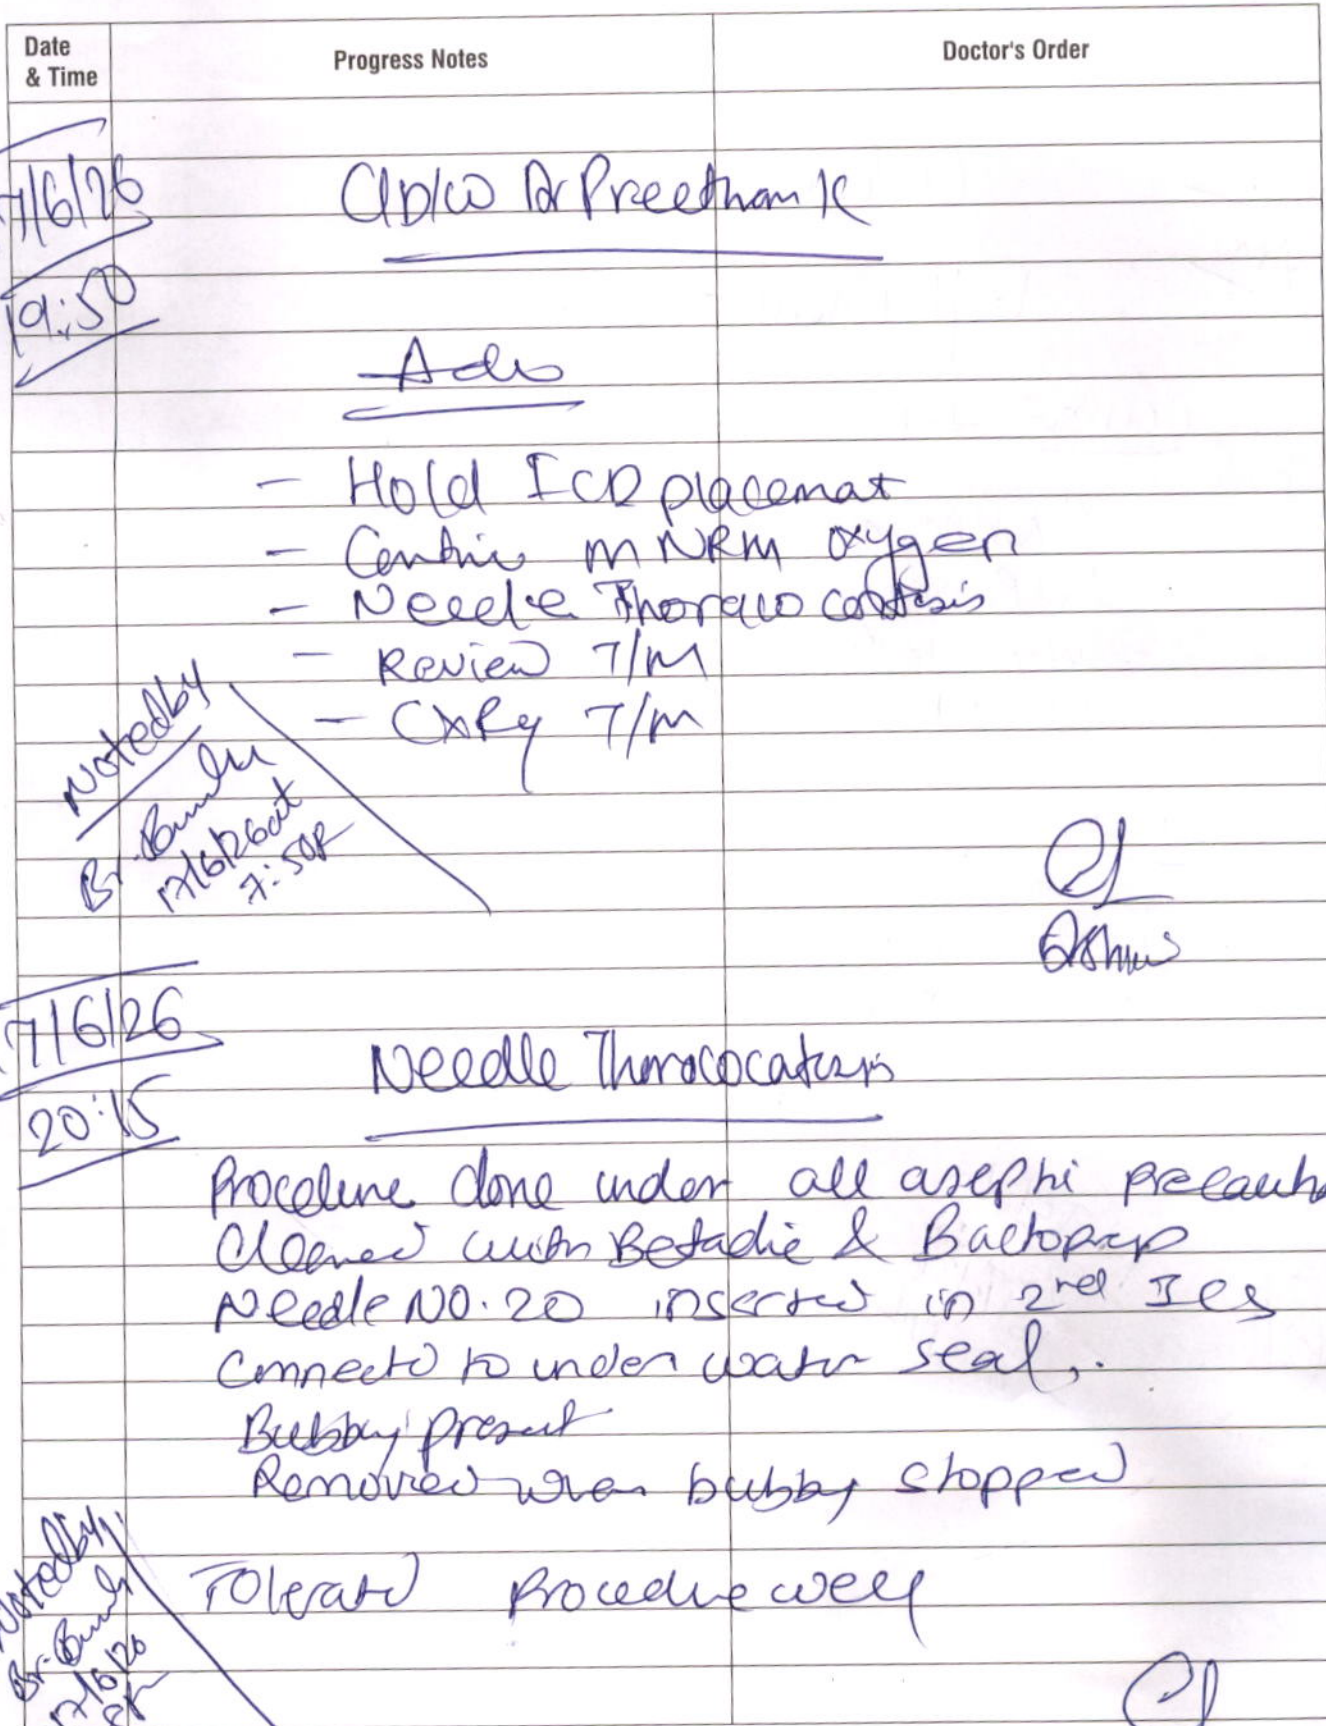 Date & Time
Progress Notes
Doctor's Order
17/6/26
C/D/W Dr Preetham K
19:50
Adv
- Hold ICD placemat
- Continue m NRM oxygen
- Needle Thoraco contesis
- Review T/M
- CXRy T/M
Noted by
Br.
17/6/26 at
7:50P
17/6/26
Needle Thoracocatesis
20:15
Procedure done under all asephi precautio
Cleaned with Betadie & Bactoprep
Needle NO. 20 inserted in 2nd ICS
Connected to under water seal.
Bubby present
Removed when bubby stopped
Noted by
Br.
17/6/26
8P
Tolerated Procedure well